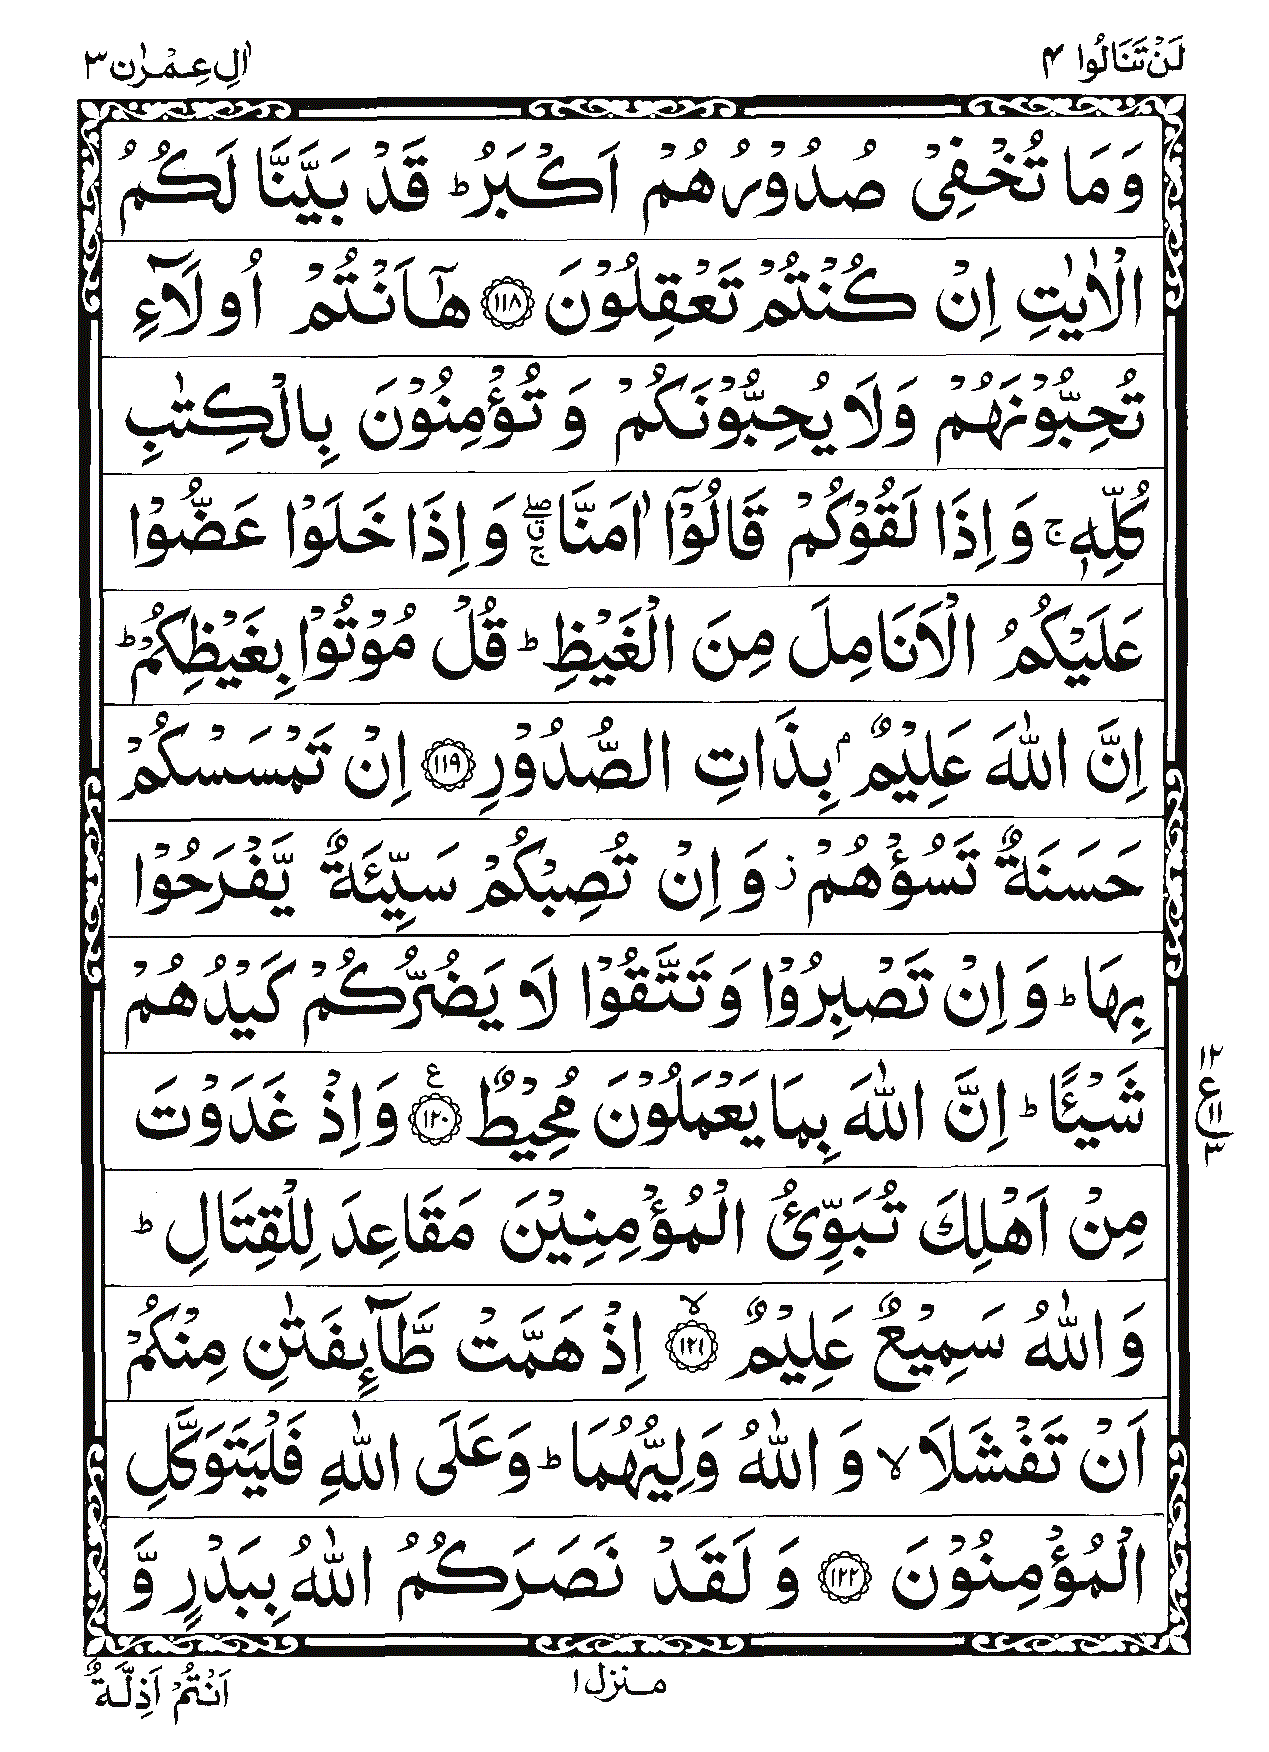 لَنْ تَنَالُوْا ۴
اٰلِ عِمْرٰن ۳
وَمَا تُخْفِیْ صُدُوْرُهُمْ اَكْبَرُ ؕ قَدْ بَیَّنَّا لَكُمُ
الْاٰیٰتِ اِنْ كُنْتُمْ تَعْقِلُوْنَ ۝۱۱۸ هٰۤاَنْتُمْ اُولَآءِ
تُحِبُّوْنَهُمْ وَلَا یُحِبُّوْنَكُمْ وَ تُؤْمِنُوْنَ بِالْكِتٰبِ
كُلِّهٖ ۚ وَ اِذَا لَقُوْكُمْ قَالُوْۤا اٰمَنَّا ۖۗۚ وَ اِذَا خَلَوْا عَضُّوْا
عَلَیْكُمُ الْاَنَامِلَ مِنَ الْغَیْظِ ؕ قُلْ مُوْتُوْا بِغَیْظِكُمْ ؕ
اِنَّ اللّٰهَ عَلِیْمٌۢ بِذَاتِ الصُّدُوْرِ ۝۱۱۹ اِنْ تَمْسَسْكُمْ
حَسَنَةٌ تَسُؤْهُمْ ؗ وَ اِنْ تُصِبْكُمْ سَیِّئَةٌ یَّفْرَحُوْا
بِهَا ؕ وَ اِنْ تَصْبِرُوْا وَ تَتَّقُوْا لَا یَضُرُّكُمْ كَیْدُهُمْ
شَیْـًٔا ؕ اِنَّ اللّٰهَ بِمَا یَعْمَلُوْنَ مُحِیْطٌ ۝۱۲۰ ع وَ اِذْ غَدَوْتَ
۱۲ ع ۱۱ ۳
مِنْ اَهْلِكَ تُبَوِّئُ الْمُؤْمِنِیْنَ مَقَاعِدَ لِلْقِتَالِ ؕ
وَ اللّٰهُ سَمِیْعٌ عَلِیْمٌ ۝۱۲۱ ۙ اِذْ هَمَّتْ طَّآىِٕفَتٰنِ مِنْكُمْ
اَنْ تَفْشَلَا ۙ وَ اللّٰهُ وَلِیُّهُمَا ؕ وَعَلَی اللّٰهِ فَلْیَتَوَكَّلِ
الْمُؤْمِنُوْنَ ۝۱۲۲ وَ لَقَدْ نَصَرَكُمُ اللّٰهُ بِبَدْرٍ وَّ
منزل ۱
اَنْتُمْ اَذِلَّةٌ